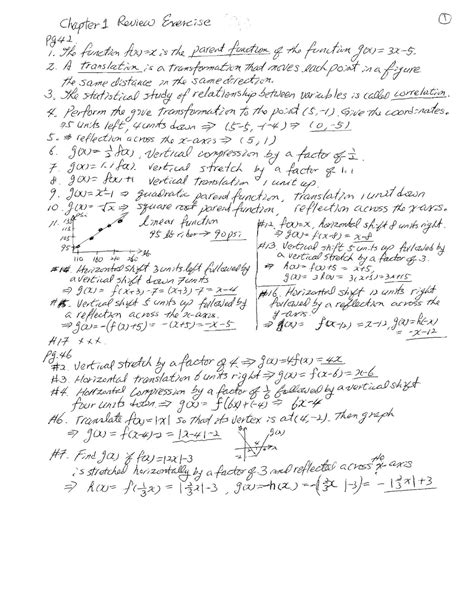 Chapter 1 Review Exercise
①
Pg 42
1. The function f(x)=x is the parent function of the function g(x)= 3x-5.
2. A translation is a transformation that moves each point in a figure
the same distance in the same direction.
3. The statistical study of relationship between variables is called correlation.
4. Perform the give transformation to the point (5,-1). Give the coordinates.
*5 units left, 4 units down ⇒ (5-5, -1-4) ⇒ (0,-5).
5. * reflection across the x-axis ⇒ (5,1)
6. g(x)= ½ f(x), vertical compression by a factor of ½.
7. g(x)= 1.1 f(x), vertical stretch by a factor of 1.1
8. g(x)= f(x)+1 vertical translation 1 unit up.
9. g(x)= x²-1 ⇒ quadratic parent function, translation 1 unit down
10. g(x)= -√x ⇒ square root parent function, reflection across the x-axis.
11. psi
linear function
45 lb 90 psi
95
110 180 240
#12. f(x)=x, horizontal shift 8 units right.
⇒ g(x)= f(x-8) = x-8
#13. Vertical shift 5 units up followed by
a vertical stretch by a factor of 3.
⇒ h(x)= f(x)+5 = x+5,
g(x)= 3h(x) = 3(x+5)= 3x+15
#14. Horizontal shift 3 units left followed by
a vertical shift down 7 units
⇒ g(x)= f(x+3)-7 = (x+3)-7 = x-4
#15. Vertical shift 5 units up followed by
a reflection across the x-axis.
⇒ g(x)= -(f(x)+5) = -(x+5) = -x-5
#16. Horizontal shift 12 units right
followed by a reflection across the
y-axis.
⇒ h(x)= f(x-12) = x-12, g(x)= h(-x)
= -x-12
#17 ***
Pg. 46
#2. Vertical stretch by a factor of 4. ⇒ g(x)= 4f(x) = 4x
#3. Horizontal translation 6 units right ⇒ g(x)= f(x-6) = x-6
#4. Horizontal compression by a factor of 1/6 followed by a vertical shift
four units down ⇒ g(x)= f(6x)+(-4) = 6x-4
#6. Translate f(x)=|x| so that its vertex is at (4,-2). Then graph
⇒ g(x)= f(x-4)-2 = |x-4|-2
g(x)
#7. Find g(x) if f(x)= |2x|-3
is stretched horizontally by a factor of 3 and reflected across the x-axis
⇒ h(x)= f(⅓x) = |⅔x|-3, g(x)= -h(x) = -(|⅔x|-3) = -|⅔x|+3